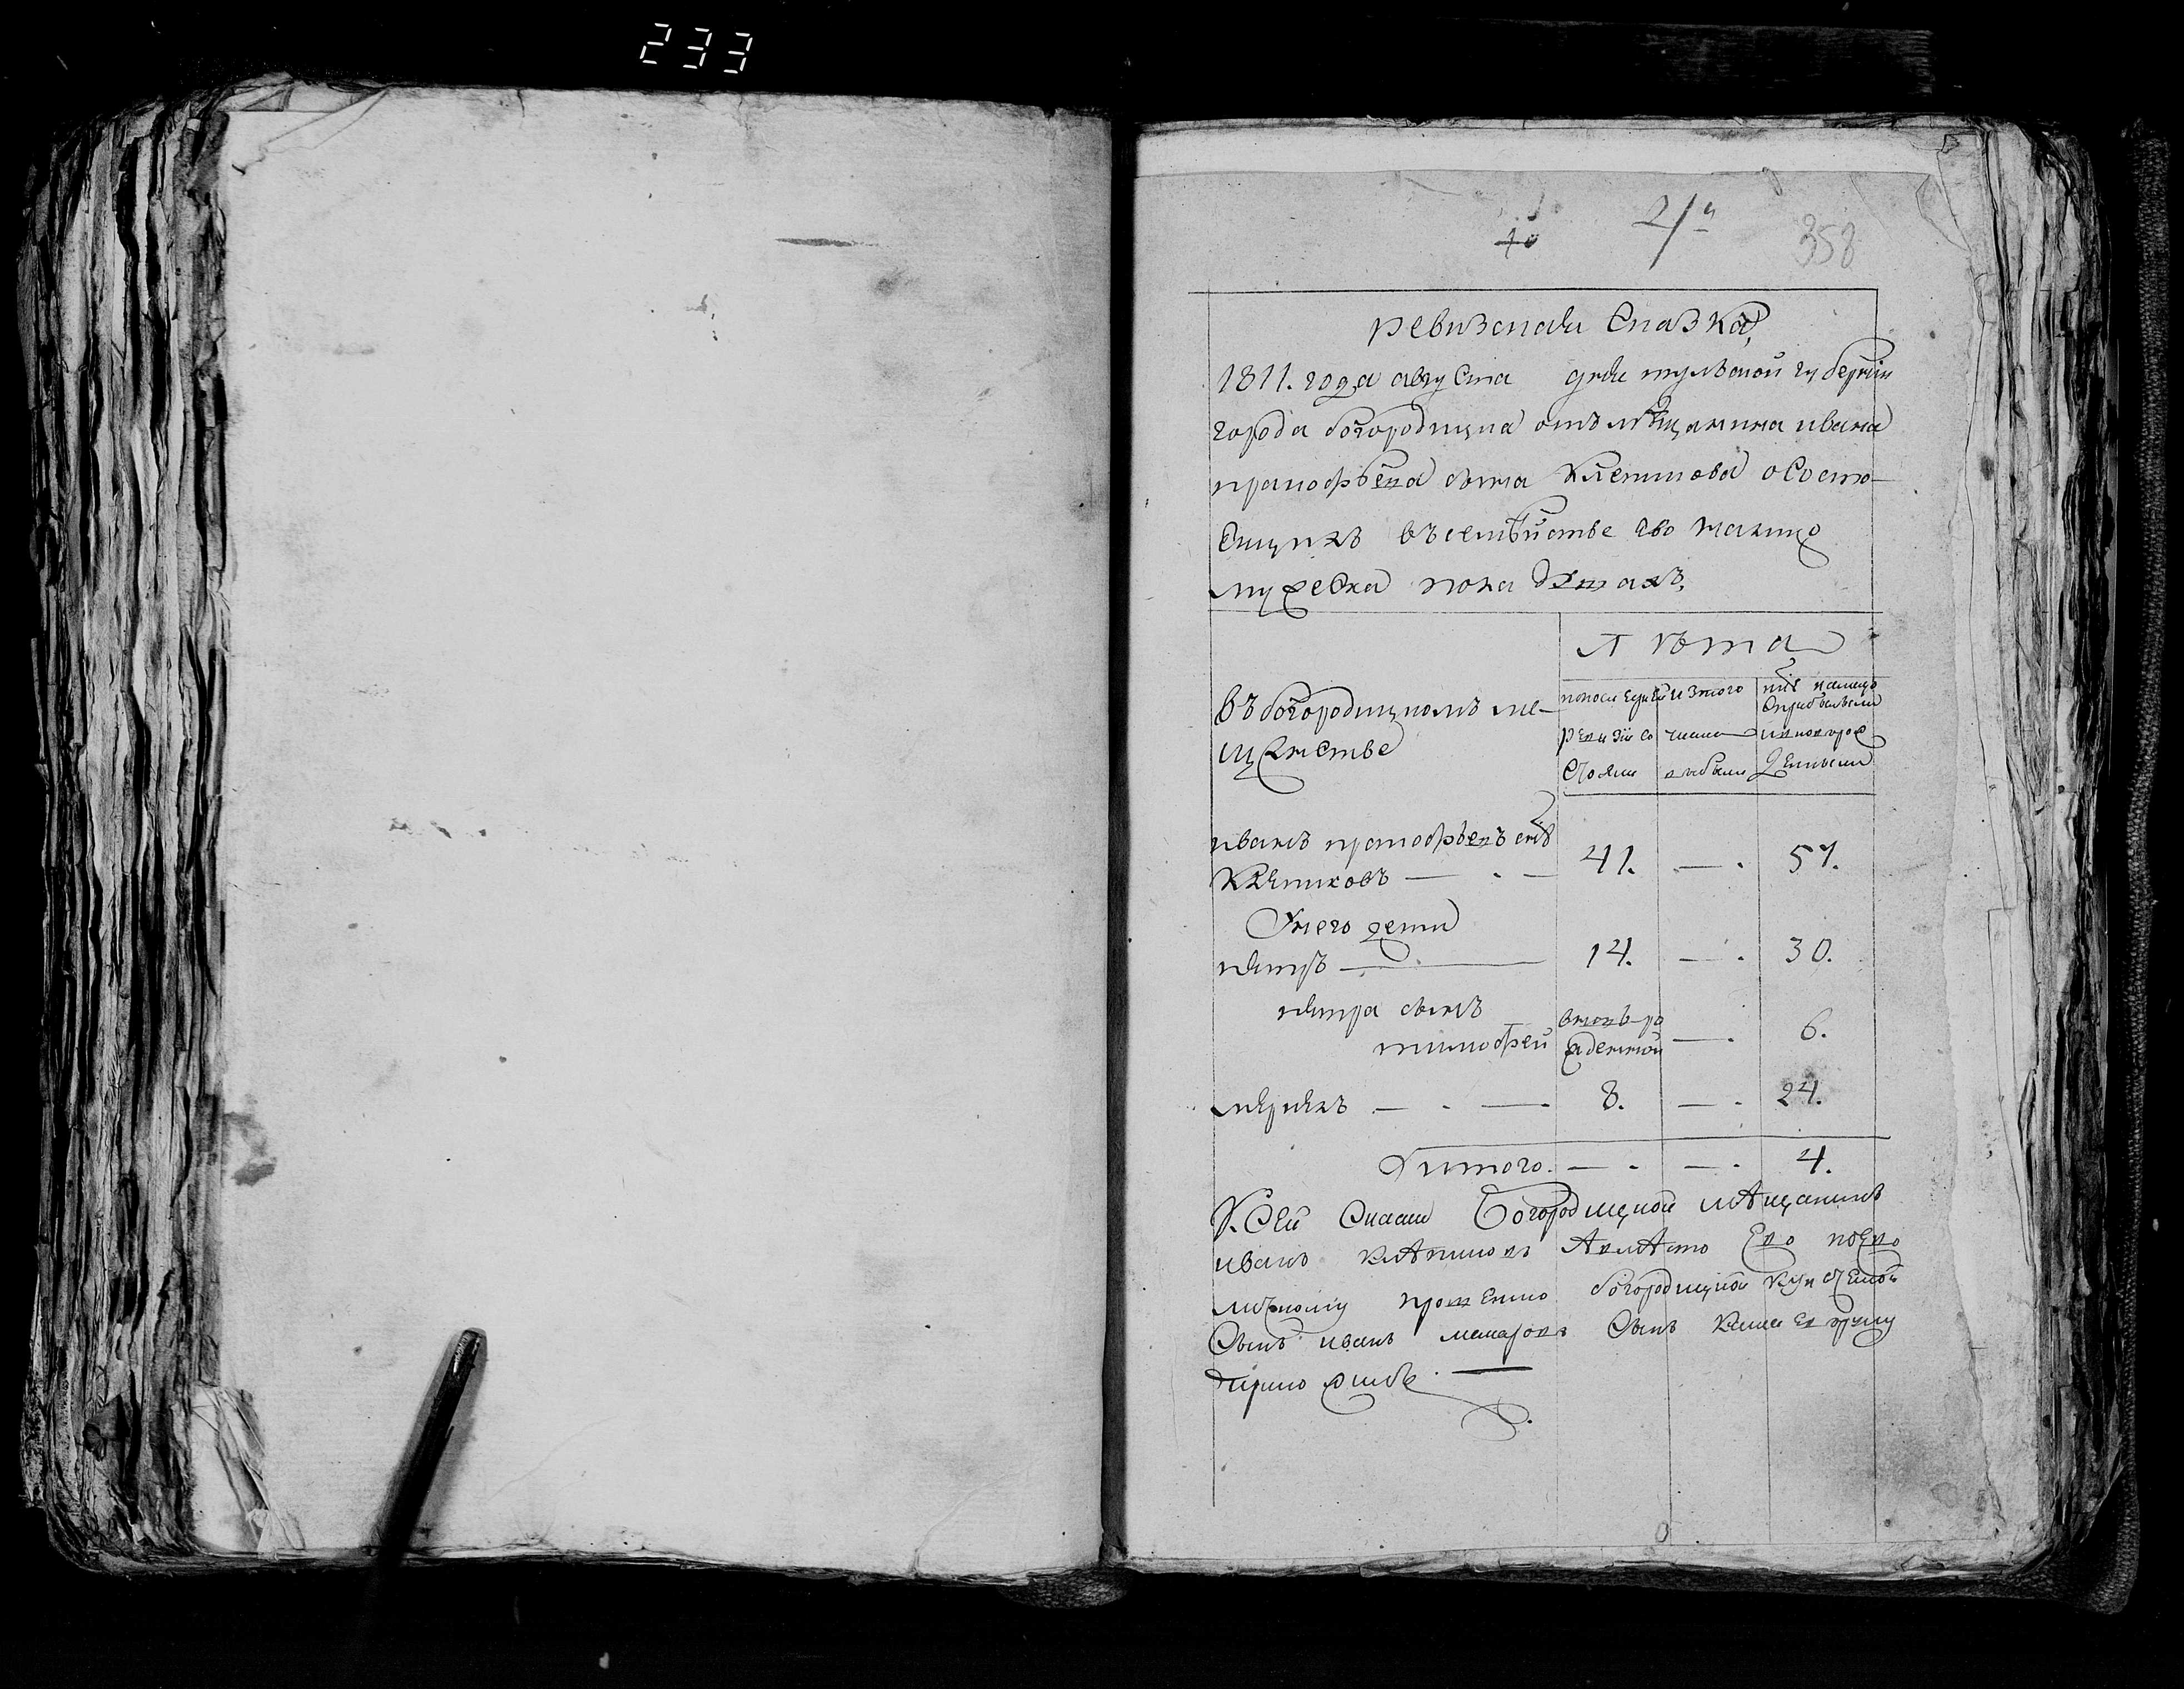 233
358
ревизская сказка,
1811. года августа дня тульской губернии
города богородицка отъ мѣщанина ивана
прокофьева сына Клепикова о состо-
ящихъ въ семѣйстве его налицо
мужеска пола душахъ,
Лѣта
въ богородицкомъ ме-
щанстве
по последней
ревизіи со
стояли
из того
числа
выбыли
ныне налицо
иванъ прокофьевъ снъ
Клепиковъ — 41. — 57.
У него дети
петръ — 14. — 30.
петра сынъ
тимофей
вновь ро
жденной — 6.
— 8. — 24.
Итого. — — 4.
К сей Скаски Богородицкой мещанинъ
иванъ клепиковъ А вместо Ево по Ево
личному прошению богородицкой купеческой
Сынъ иванъ Сынъ руку
приложилъ